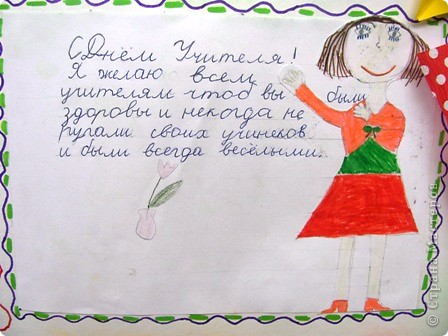 С Днём Учителя!
Я желаю всем
учителям чтоб вы были
здоровы и некогда не
ругали своих учинеков
и были всегда весёлыми.
© Страна Мастеров